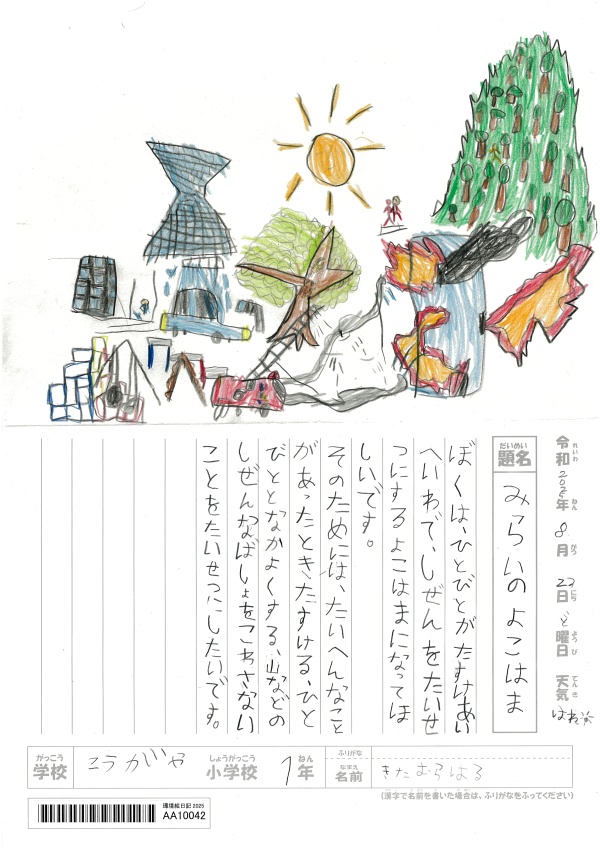 令和 2025年 8月 23日 ど曜日 天気 はれ
れいわ ねん がつ にち ようび てんき
だいめい
題名
みらいのよこはま
ぼくは、ひとびとがたすけあい
へいわで、しぜんをたいせ
つにするよこはまになってほ
しいです。
そのためには、たいへんなこと
があったときたすける、ひと
びととなかよくする、山などの
しぜんなばしょをこわさない
ことをたいせつにしたいです。
がっこう
学校
こうがや
しょうがっこう
小学校
1年
ねん
ふりがな
なまえ
名前
きたむらはる
(漢字で名前を書いた場合は、ふりがなをふってください)
環境絵日記 2025
AA10042